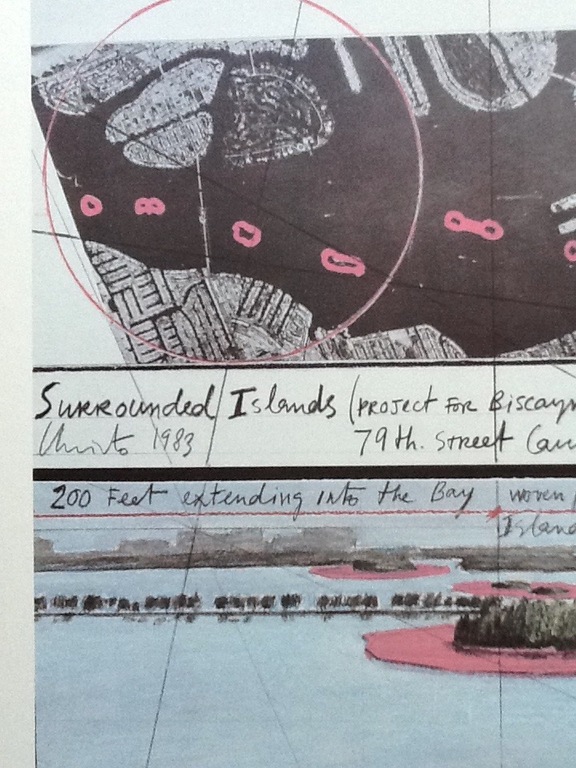 Surrounded Islands (PROJECT FOR Biscay
Christo 1983 79th. STREET Cau
200 Feet extending into the Bay woven
Island